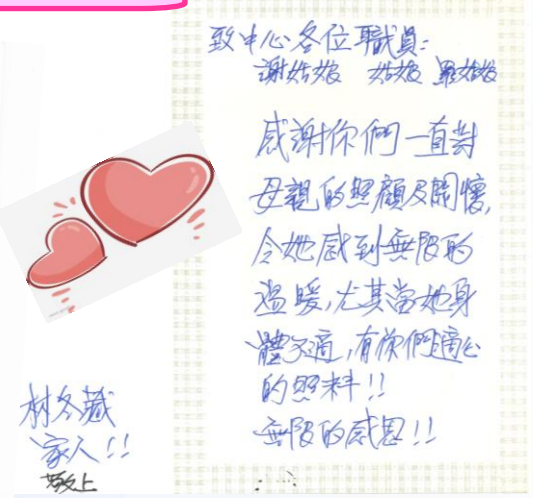 致中心各位職員:
謝姑娘 姑娘 羅姑娘
感謝你們一直對
母親的照顧及關懷,
令她感到無限的
溫暖,尤其當她身
體不適,有你們適心
的照料!!
無限的感恩!!
林冬
家人!!
敬上